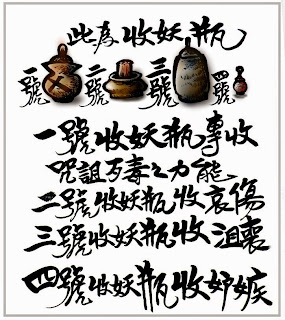 此為收妖瓶
一號 二號 三號 四號
一號收妖瓶專收
咒詛歹毒之力能
二號收妖瓶收哀傷
三號收妖瓶收沮喪
四號收妖瓶收妒嫉